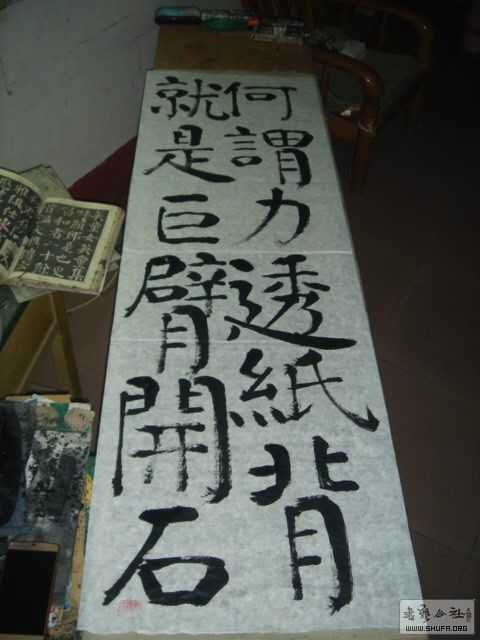 何謂力透紙背
就是巨臂開石
書藝公社
WWW.SHUFA.ORG